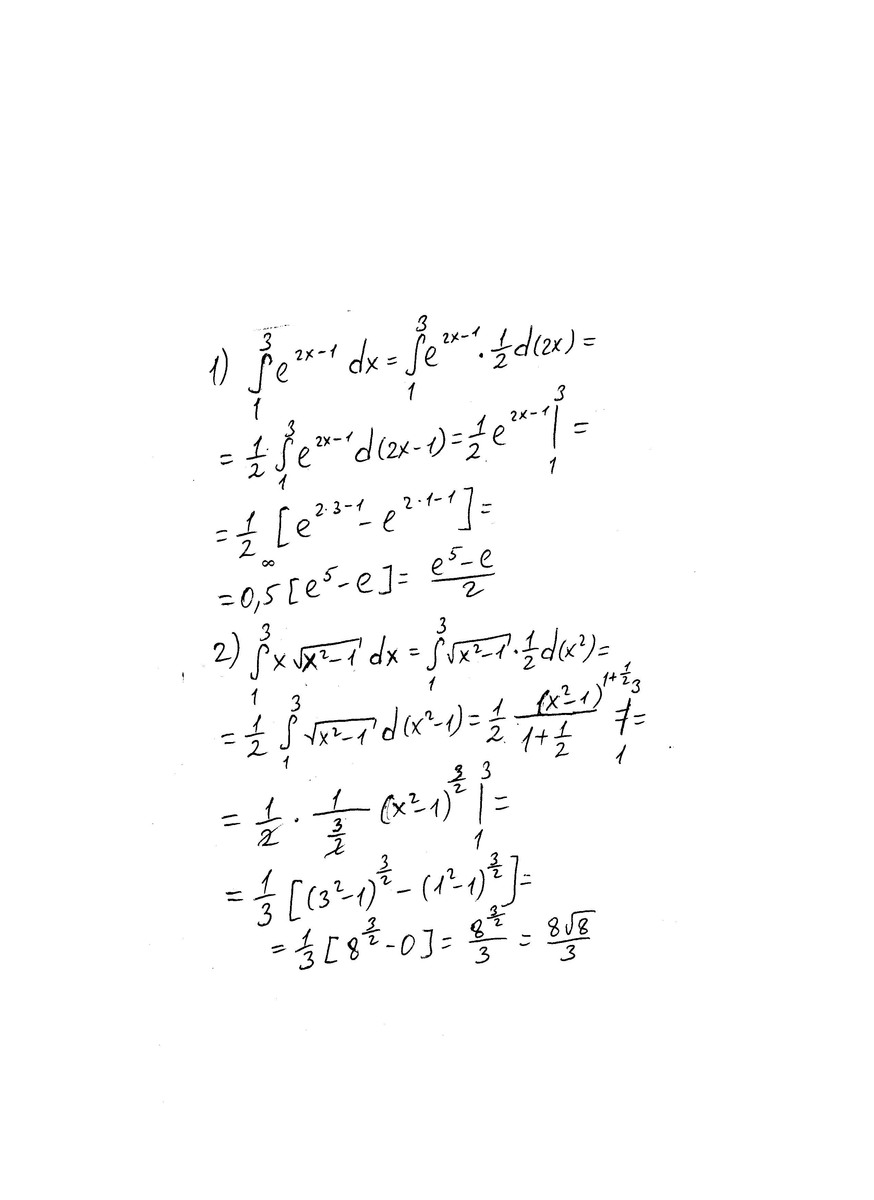 1) ∫₁³ e^{2x-1} dx = ∫₁³ e^{2x-1} · \frac{1}{2} d(2x) =
= \frac{1}{2} ∫₁³ e^{2x-1} d(2x-1) = \frac{1}{2} e^{2x-1} |₁³ =
= \frac{1}{2} [e^{2·3-1} - e^{2·1-1}] =
= 0,5 [e^5 - e] = \frac{e^5 - e}{2}
2) ∫₁³ x √{x²-1} dx = ∫₁³ √{x²-1} · \frac{1}{2} d(x²) =
= \frac{1}{2} ∫₁³ √{x²-1} d(x²-1) = \frac{1}{2} \frac{(x²-1)^{1+\frac{1}{2}}}{1+\frac{1}{2}} |₁³ =
= \frac{1}{2} · \frac{1}{\frac{3}{2}} (x²-1)^{\frac{3}{2}} |₁³ =
= \frac{1}{3} [(3²-1)^{\frac{3}{2}} - (1²-1)^{\frac{3}{2}}] =
= \frac{1}{3} [8^{\frac{3}{2}} - 0] = \frac{8^{\frac{3}{2}}}{3} = \frac{8√8}{3}